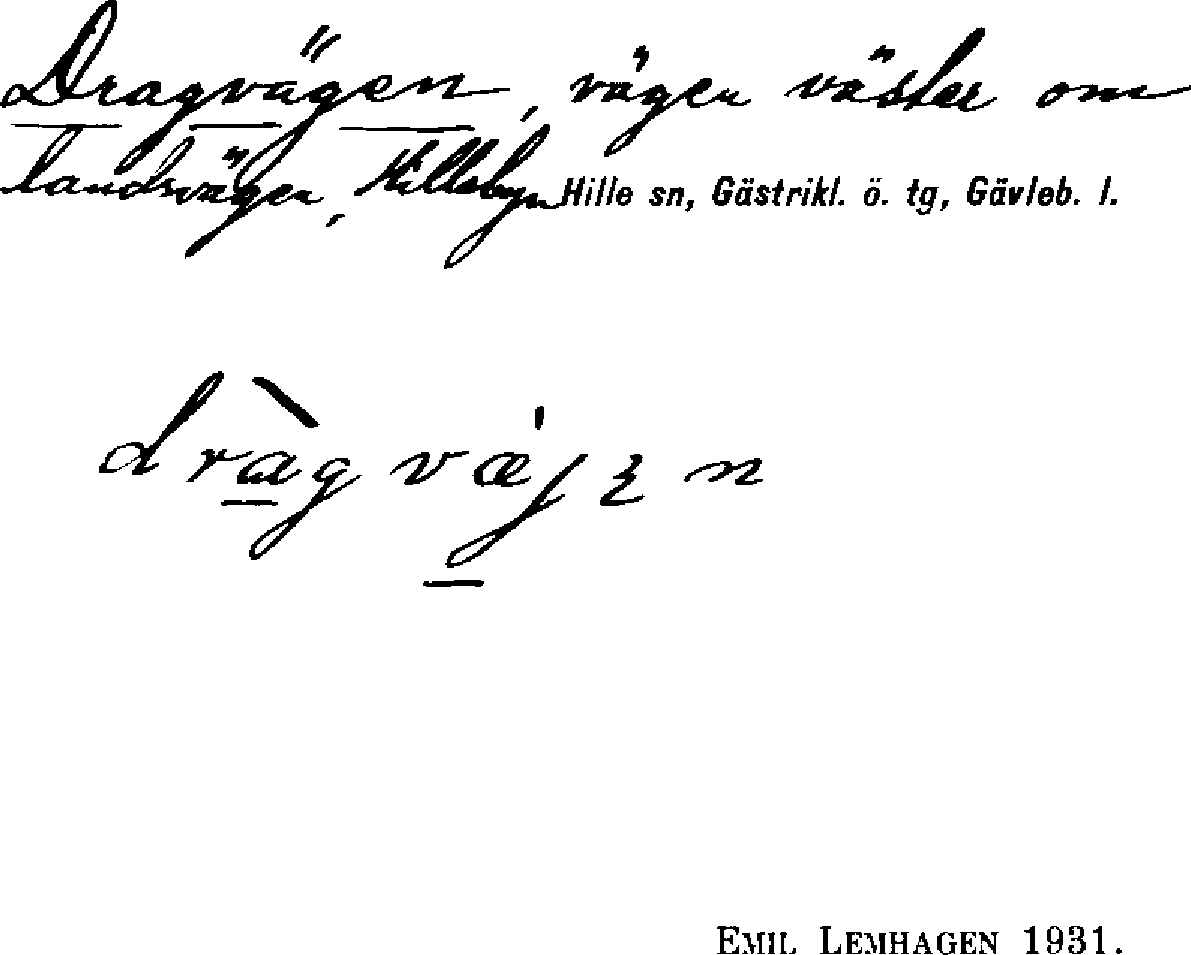 Dragvägen, vägen väster om
landsvägen, Hillebyn Hille sn, Gästrikl. ö. tg, Gävleb. l.
dràgvæ̍jɛn
EMIL LEMHAGEN 1931.